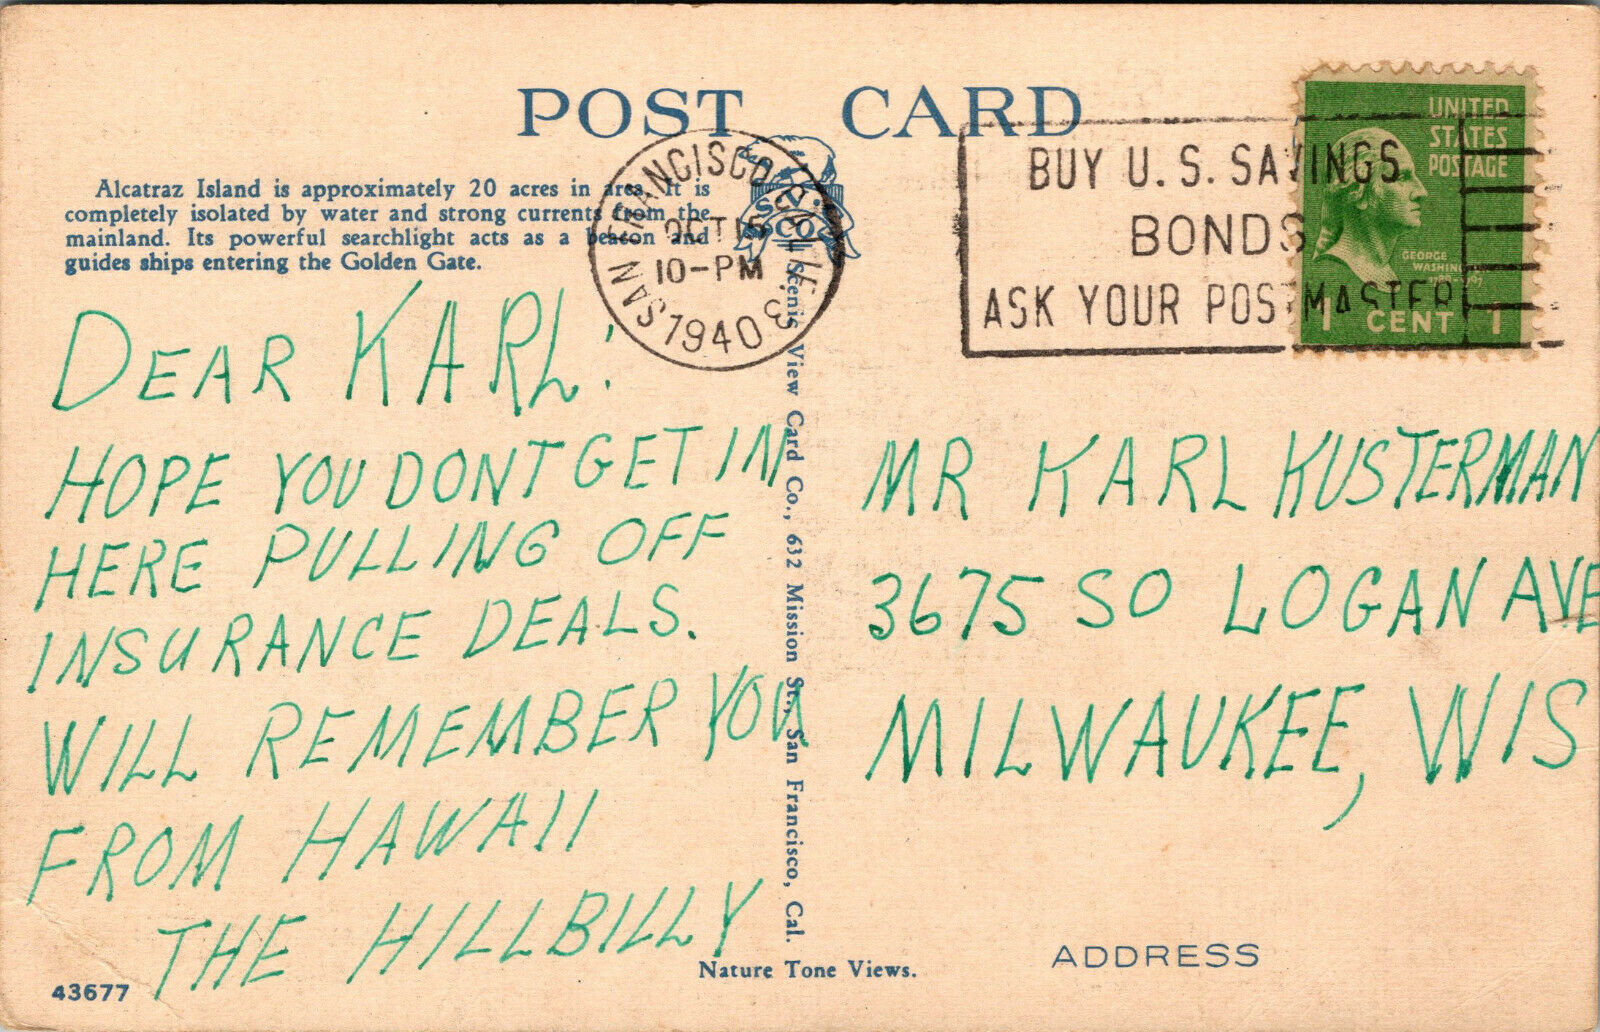 POST CARD
Alcatraz Island is approximately 20 acres in area. It is
completely isolated by water and strong currents from the
mainland. Its powerful searchlight acts as a beacon and
guides ships entering the Golden Gate.
SAN FRANCISCO, CALIF. 3
OCT 15
10-PM
1940
V.
S. CO.
BUY U.S. SAVINGS
BONDS
ASK YOUR POSTMASTER
UNITED
STATES
POSTAGE
GEORGE
WASHINGTON
1 CENT 1
DEAR KARL:
HOPE YOU DONT GET IN
HERE PULLING OFF
INSURANCE DEALS.
WILL REMEMBER YOU
FROM HAWAII
THE HILLBILLY
Scenic View Card Co., 632 Mission St., San Francisco, Cal.
MR KARL KUSTERMAN
3675 SO LOGAN AVE
MILWAUKEE, WIS
ADDRESS
Nature Tone Views.
43677